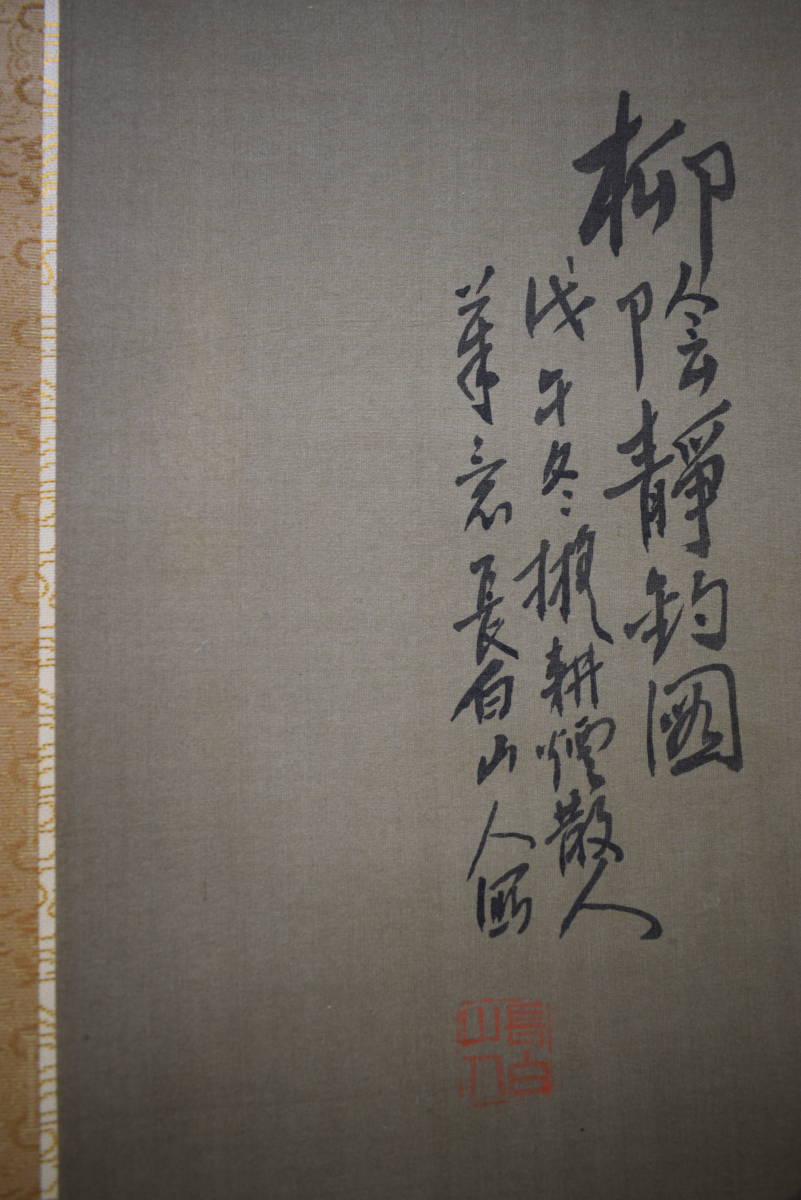 柳陰靜釣圖
戊午冬擬耕煙散人
筆意長白山人寫
長白
山人